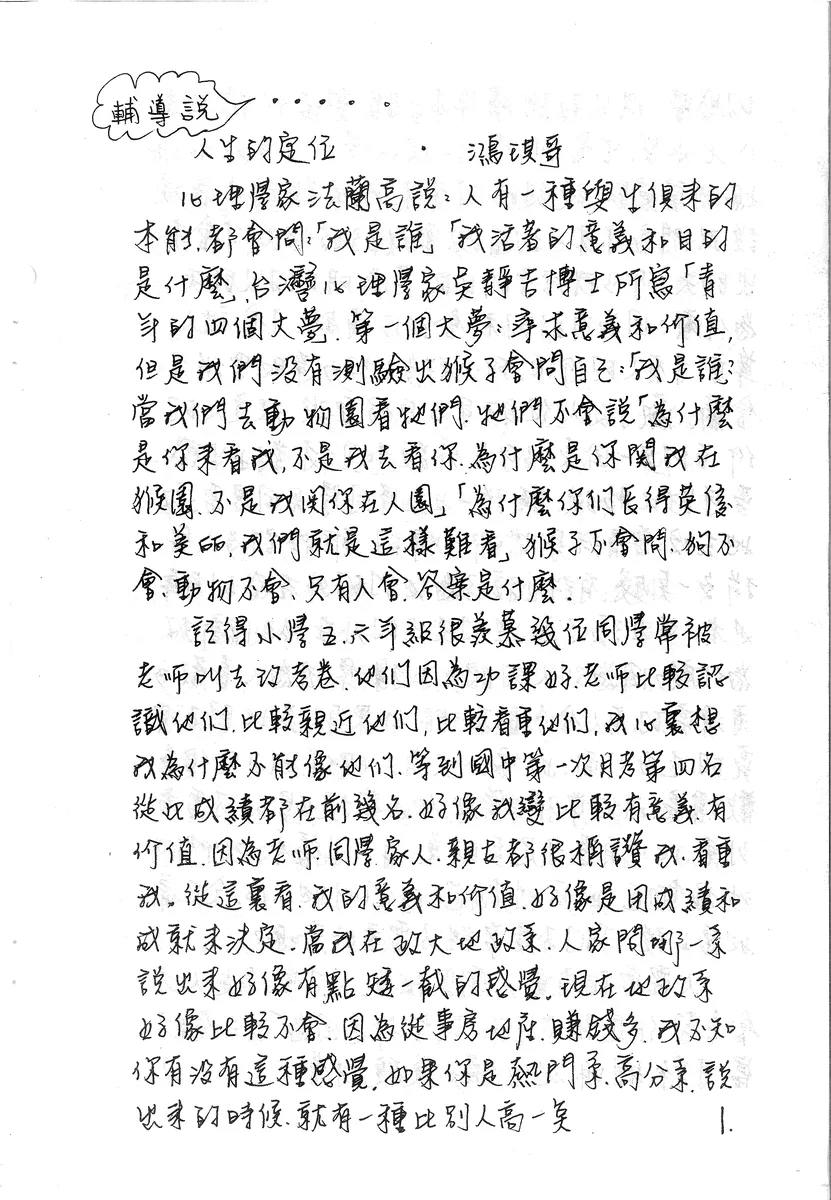 輔導説 ・・・・・・
人生的定位 · 鴻琪哥
心理學家法蘭高説：人有一種與生俱來的
本能.都會問：「我是誰」「我活著的意義和目的
是什麼」.台灣心理學家吳靜吉博士所寫「青
年的四個大夢. 第一個大夢：尋求意義和价值,
但是我們沒有測驗出猴子會問自己：「我是誰?
當我們去動物園看牠們. 牠們不會說「為什麼
是你来看我,不是我去看你.為什麼是你関我在
猴園.不是我関你在人園」「為什麼你们長得英俊
和美丽,我們就是這樣難看」猴子不會問.狗不
會.動物不會.只有人會.答案是什麼.
記得小學五.六年級很羨慕幾位同學常被
老师叫去改考卷.他们因為功課好.老师比較認
識他们.比較親近他们,比較看重他们,我心裏想
我為什麼不能像他们.等到國中第一次月考第四名
從此成績都在前幾名.好像我變比較有意義.有
价值.因為老师.同學家人.親古都很稱讚我.看重
我。從這裏看.我的意義和价值.好像是用成績和
成就来決定.當我在政大地政系.人家問哪一系
說出来好像有點矮一截的感覺.現在地政系
好像比較不會.因為從事房地產.賺錢多.我不知
你有没有這種感覺.如果你是熱門系.高分系.說
出来的時候.就有一種比别人高一矣
1.